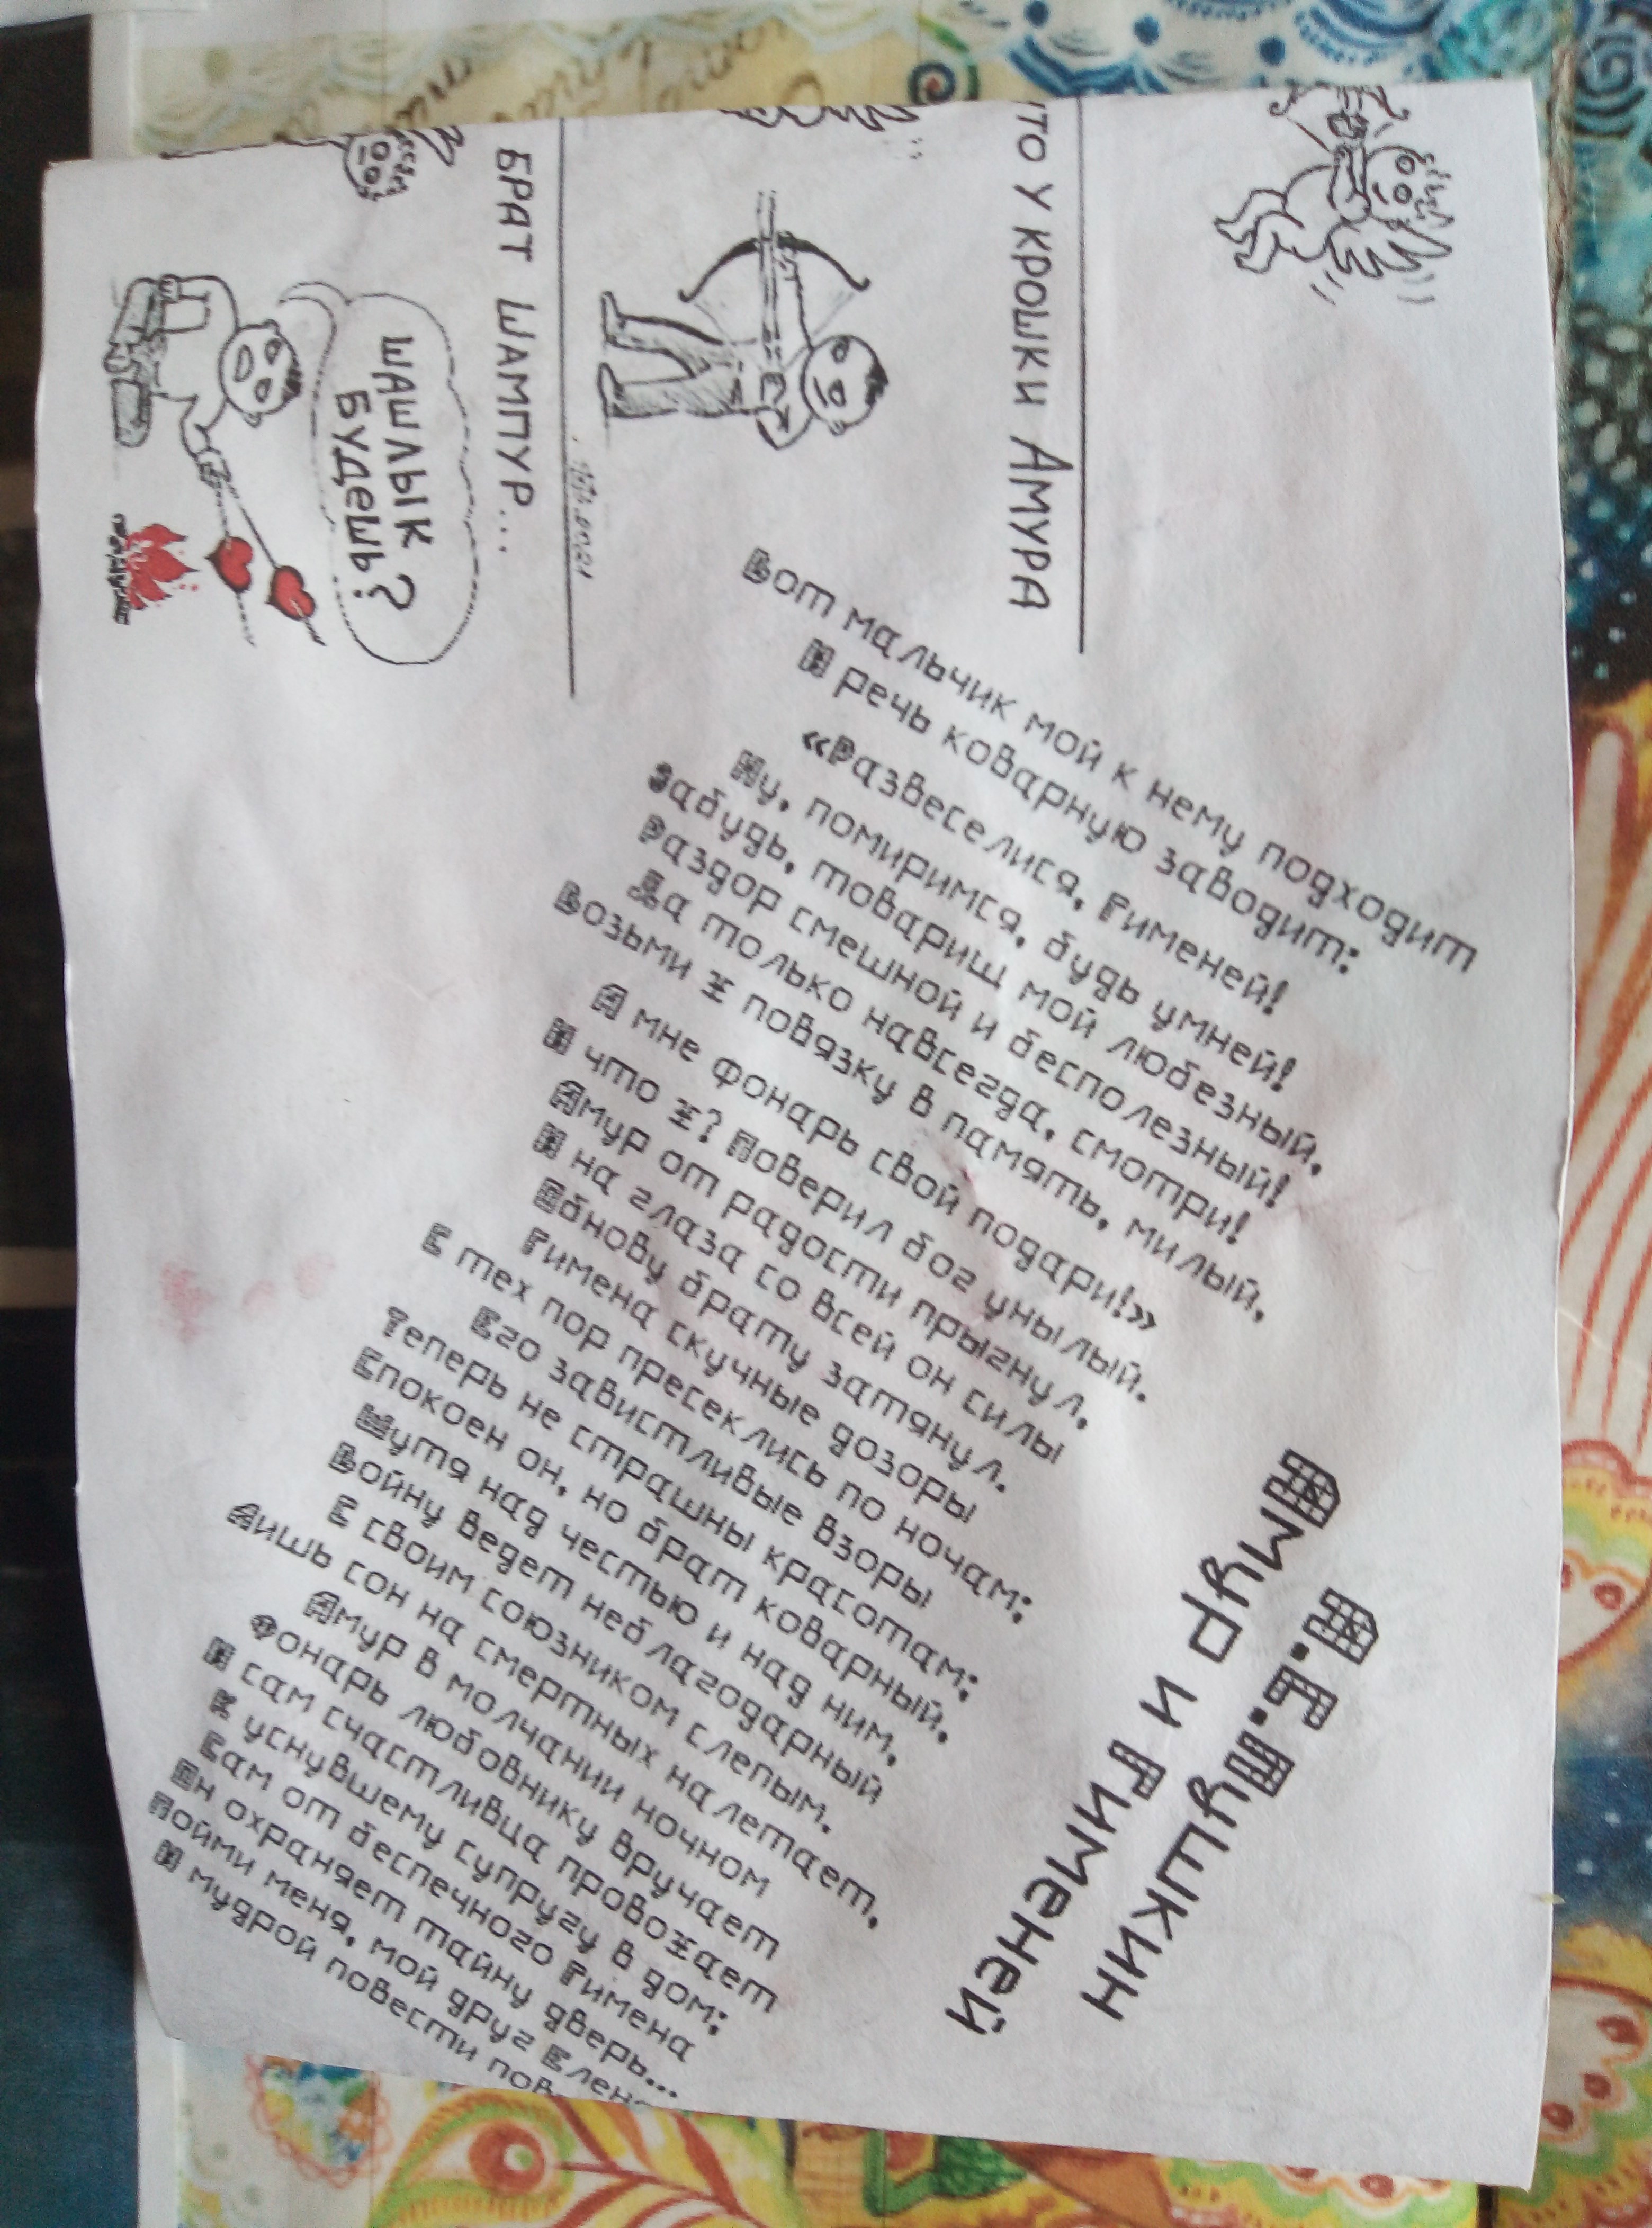 ЧТО У КРОШКИ АМУРА
БРАТ ШАМПУР...
ШАШЛЫК
БУДЕШЬ?
А.С.Пушкин
Амур и Гименей
Вот мальчик мой к нему подходит
И речь коварную заводит:
«Развеселися, Гименей!
Ну, помиримся, будь умней!
Забудь, товарищ мой любезный,
Раздор смешной и бесполезный!
Да только навсегда, смотри!
Возьми ж повязку в память, милый,
А мне фонарь свой подари!»
И что ж? Поверил бог унылый.
Амур от радости прыгнул,
И на глаза со всей он силы
Обнову брату затянул.
Гимена скучные дозоры
С тех пор пресеклись по ночам;
Его завистливые взоры
Теперь не страшны красотам;
Спокоен он, но брат коварный,
Шутя над честью и над ним,
Войну ведет неблагодарный
С своим союзником слепым.
Лишь сон на смертных налетает,
Амур в молчании ночном
Фонарь любовнику вручает
И сам счастливца провожает
К уснувшему супругу в дом;
Сам от беспечного Гимена
Он охраняет тайну дверь...
Пойми меня, мой друг Елена
И мудрой повести пов